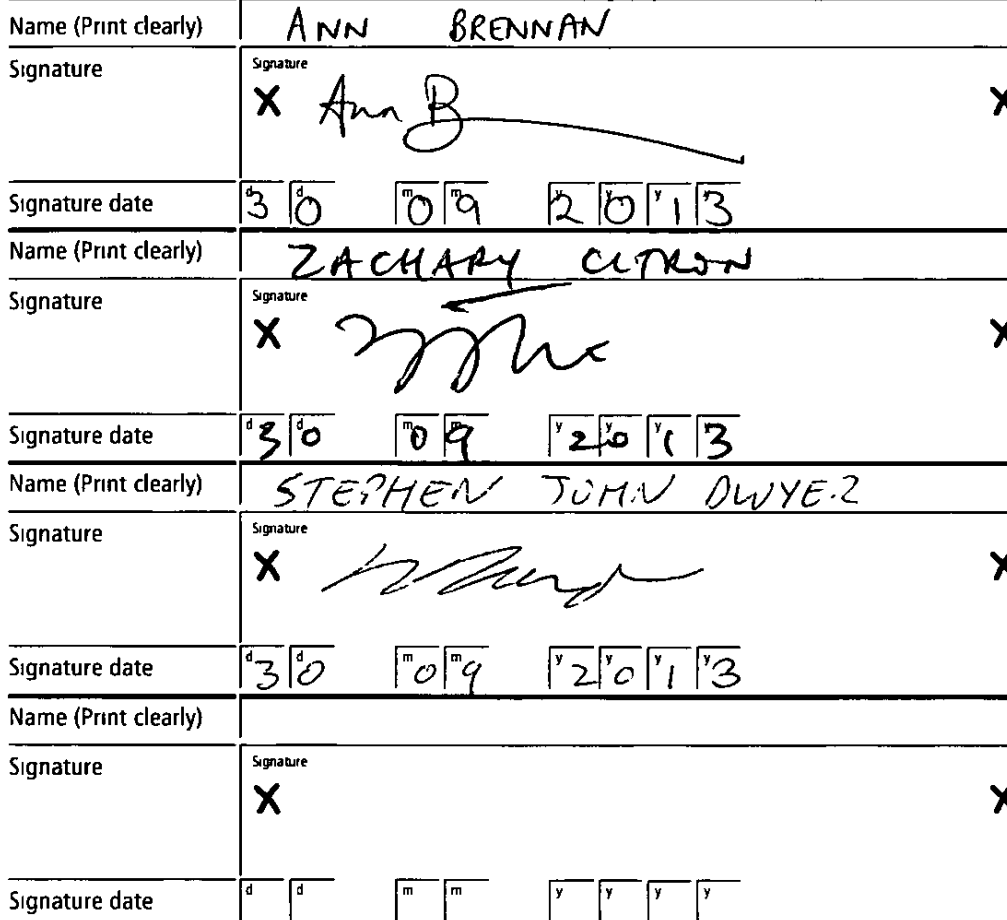 Name (Print clearly) ANN BRENNAN
Signature Signature
X Ann B X
Signature date d3 d0 m0 m9 y2 y0 y1 y3
Name (Print clearly) ZACHARY CITRON
Signature Signature
X X
Signature date d3 d0 m0 m9 y2 y0 y1 y3
Name (Print clearly) STEPHEN JOHN DWYER
Signature Signature
X X
Signature date d3 d0 m0 m9 y2 y0 y1 y3
Name (Print clearly)
Signature Signature
X X
Signature date d d m m y y y y